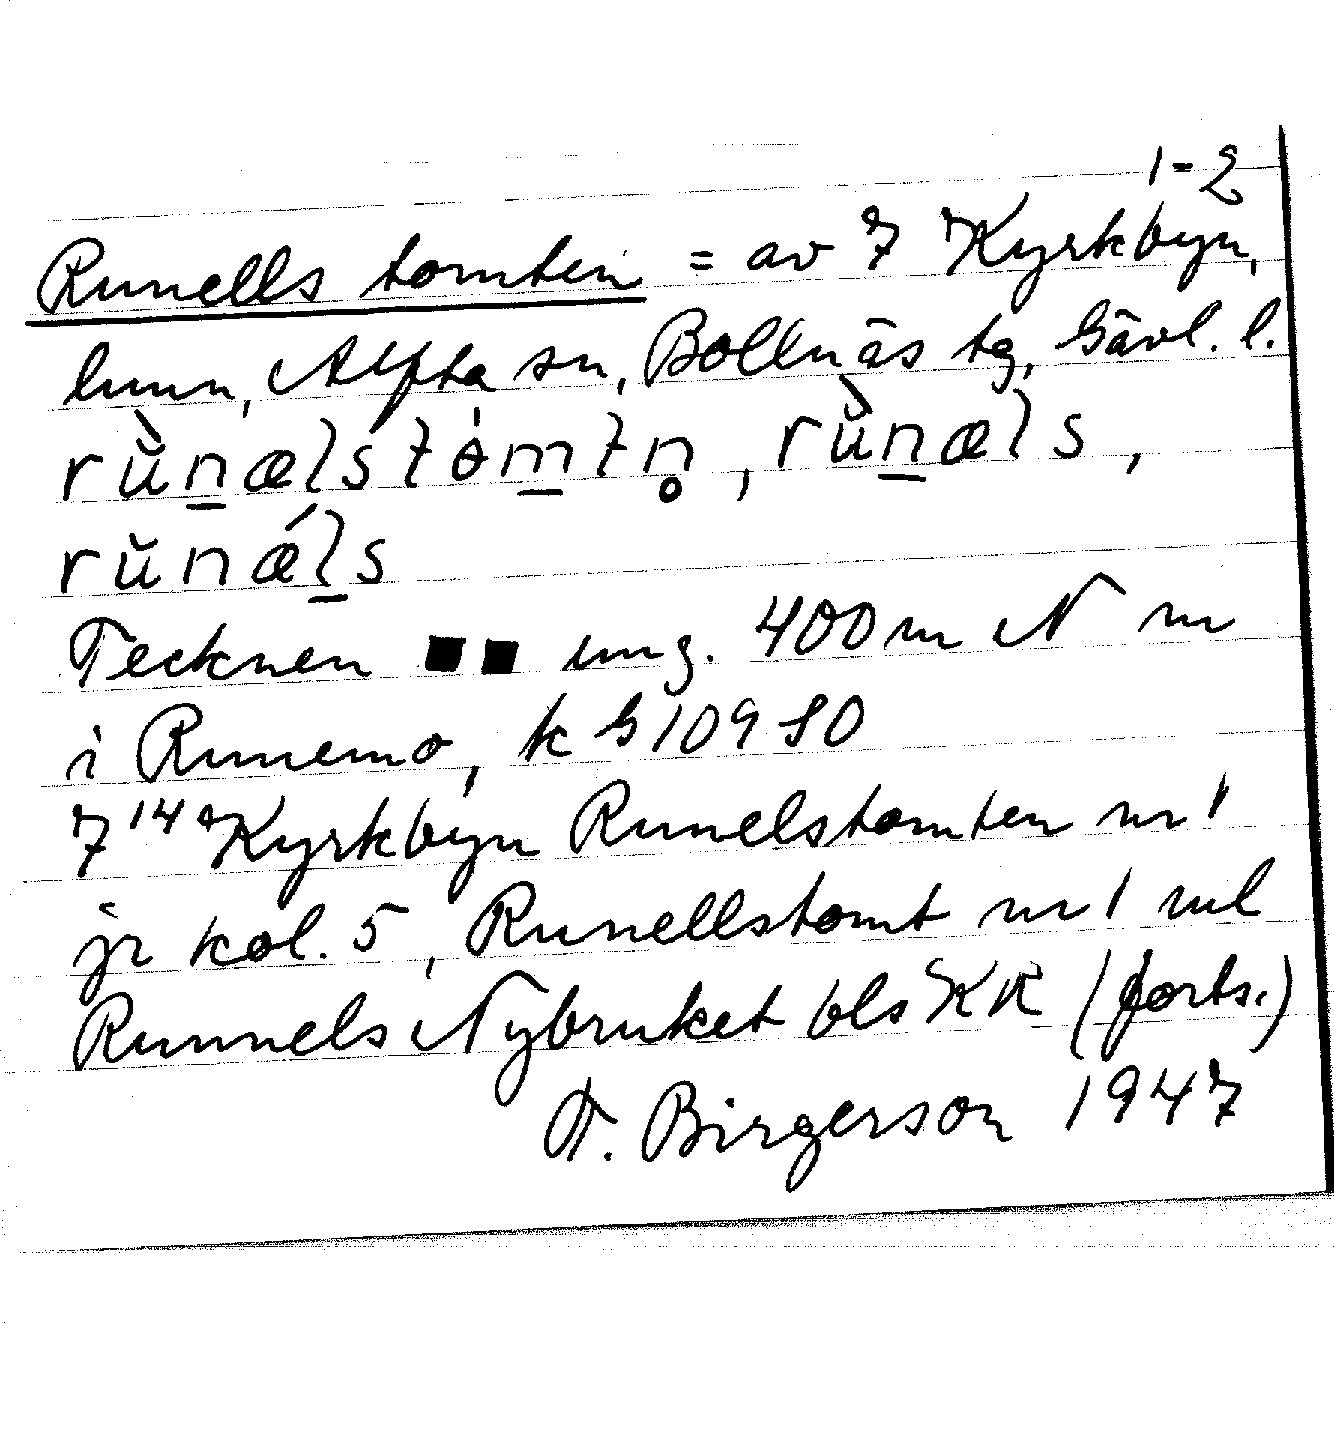 1-2
Runells tomten = av 7 Kyrkbyn,
lunn, Alfta sn, Bollnäs tg, Gävl. l.
rùn̲ælstòm̲tn̥, rùn̲æls,
rŭnǽl̲s
Tecknen ■■ ung. 400 m N nr
i Runemo, k G 109 S0
7 14 Kyrkbyn Runelstomten nr 1
jr kol. 5, Runellstomt nr 1 ml
Runnels Nybruket bls KR (forts.)
F. Birgerson 1947